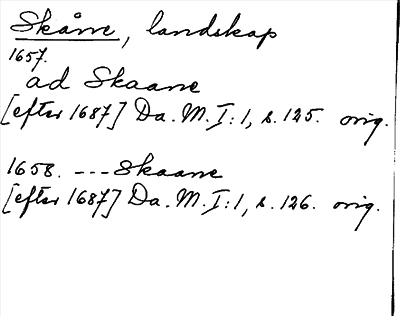 Skåne, landskap
1657.
ad Skaane
[efter 1687] Da. M. I: 1, s. 125. orig.
1658. --- Skaane
[efter 1687] Da. M. I: 1, s. 126. orig.